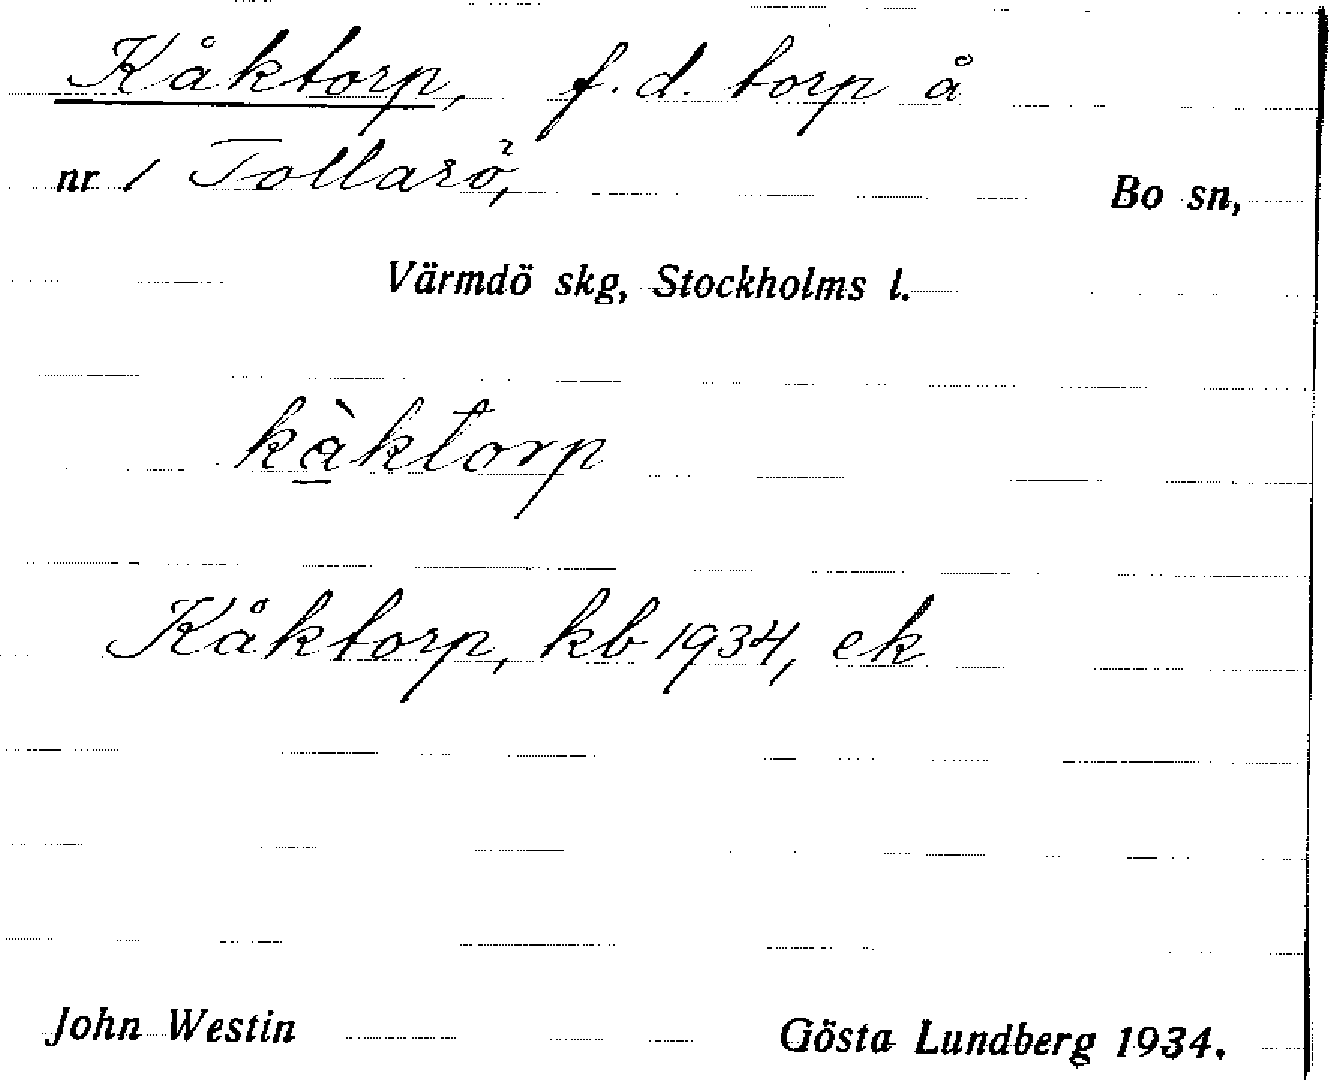 Kåktorp, f.d. torp å
nr 1 Tollarö, Bo sn,
Värmdö skg, Stockholms l.
kàktorp
Kåktorp, kb 1934, ek
John Westin Gösta Lundberg 1934.